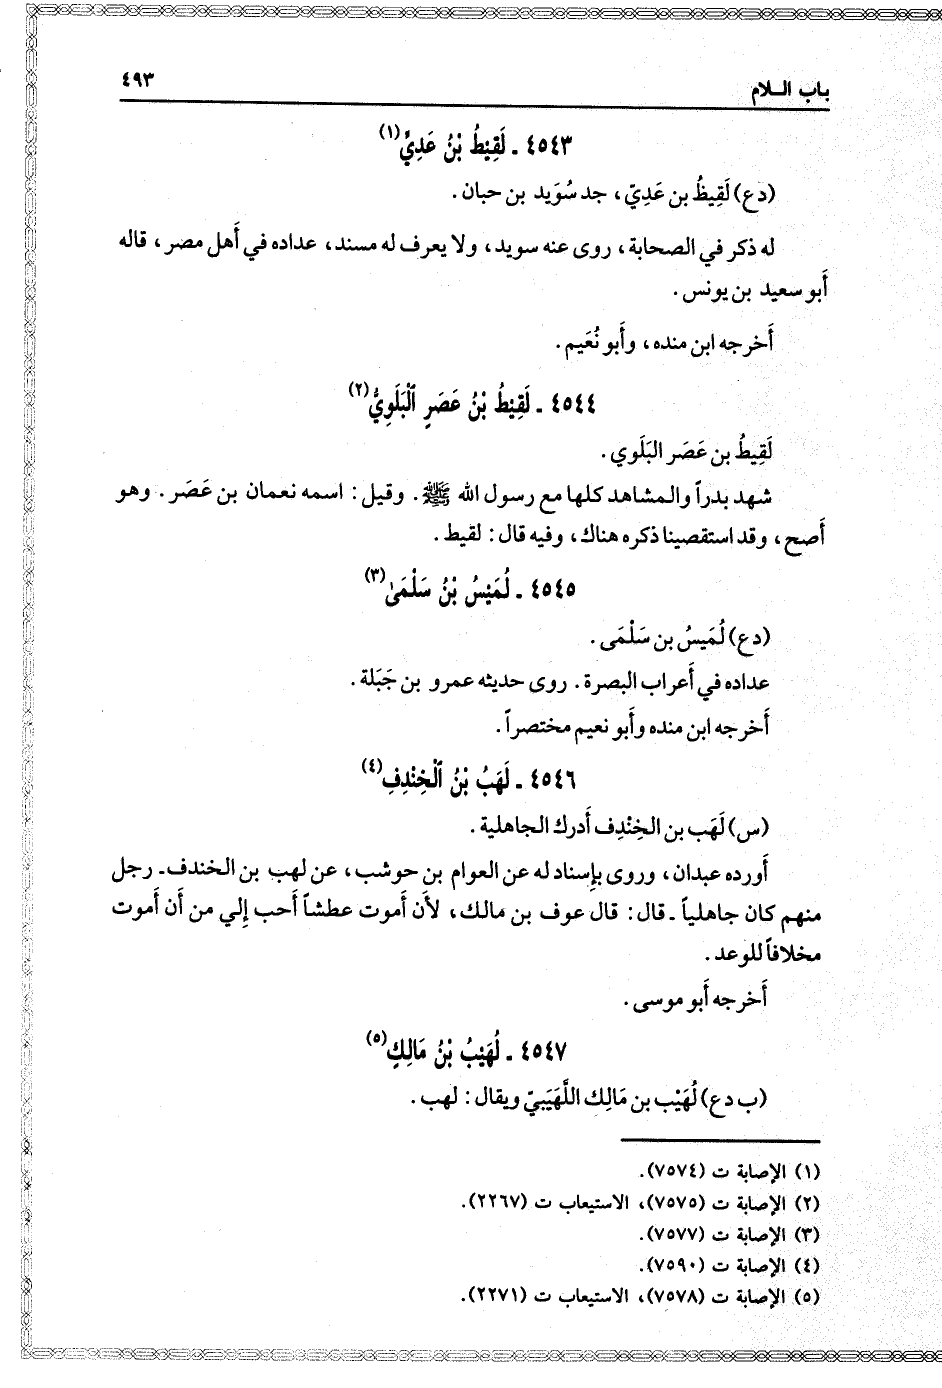 باب الـلام
٤٩٣
٤٥٤٣ ـ لَقِيْطُ بْنُ عَدِيٍّ(١)
(دع) لَقِيظُ بن عَدِيّ، جد سُوَيد بن حبان.
له ذكر في الصحابة، روى عنه سويد، ولا يعرف له مسند، عداده في أَهل مصر، قاله
أَبو سعيد بن يونس.
أَخرجه ابن منده، وأَبو نُعَيم.
٤٥٤٤ ـ لَقِيْطُ بْنُ عَصَرٍ ٱلْبَلَوِيُّ(٢)
لَقِيطُ بن عَصَر البَلَوي.
شهد بدراً والمشاهد كلها مع رسول الله ﷺ. وقيل: اسمه نعمان بن عَصَر. وهو
أَصح، وقد استقصينا ذكره هناك، وفيه قال: لقيط.
٤٥٤٥ ـ لُمَيْسُ بْنُ سَلْمَىٰ(٣)
(دع) لُمَيسُ بن سَلْمَى.
عداده في أَعراب البصرة. روى حديثه عمرو بن جَبَلة.
أَخرجه ابن منده وأَبو نعيم مختصراً.
٤٥٤٦ ـ لَهَبُ بْنُ ٱلْخِنْدِفِ(٤)
(س) لَهَب بن الخِنْدِف أَدرك الجاهلية.
أَورده عبدان، وروى بإِسناد له عن العوام بن حوشب، عن لهب بن الخندف ـ رجل
منهم كان جاهلياً ـ قال: قال عوف بن مالك، لأَن أَموت عطشاً أَحب إِلي من أَن أَموت
مخلافاً للوعد.
أَخرجه أَبو موسى.
٤٥٤٧ ـ لُهَيْبُ بْنُ مَالِكٍ(٥)
(ب دع) لُهَيْب بن مَالِك اللَّهَيَبيّ ويقال: لهب.
(١) الإصابة ت (٧٥٧٤).
(٢) الإصابة ت (٧٥٧٥)، الاستيعاب ت (٢٢٦٧).
(٣) الإصابة ت (٧٥٧٧).
(٤) الإصابة ت (٧٥٩٠).
(٥) الإصابة ت (٧٥٧٨)، الاستيعاب ت (٢٢٧١).